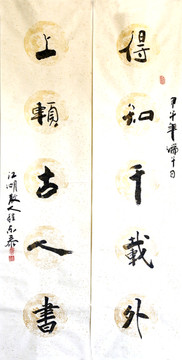 得知千載外
甲午年端午日
上賴古人書
江湖散人